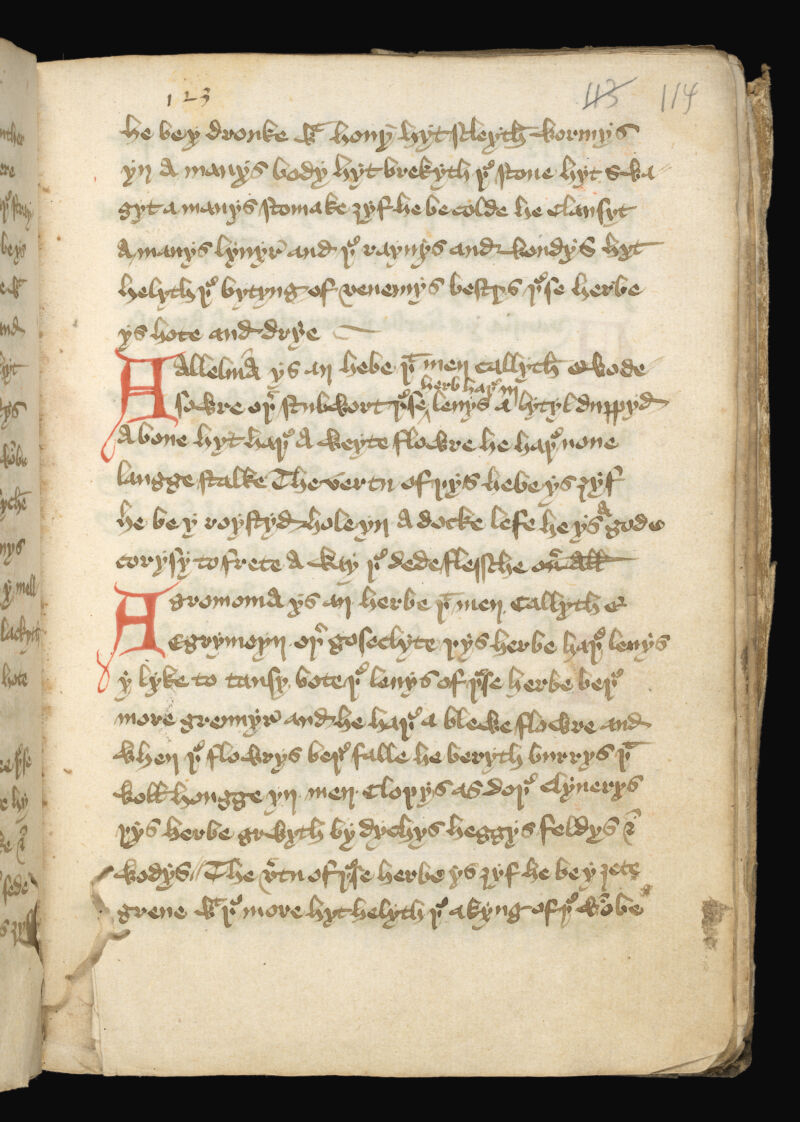 123
113 114
he be y dronke wt hony hyt sleyth wormys
yn a manys body hyt brekyth þe stone hyt swa
gyt a manys stomake ȝyf he be colde he clansyt
a manys lynyr and þe raynys and wondys hyt
helyth þe bytyng of venemys bestys þese herbe
ys hote and drye
Aallelnia ys an hebe þt men callyth wode
sowre oþr stubwort þese herb haþe in lenys a lytyl duppyd
a bone hyt haþe a weyte flowre he haþe none
langge stalke The vertu of þys hebe ys ȝyf
he be y roystyd hole yn a docke lefe he ys a gode
corysy to frete a way þe dede flessche
Agromonia ys an herbe þt men callyth
Egrymoyn oþr goseclyte þys herbe haþe lenys
y lyke to tansy bote þe lenys of þese herbe beþe
more grennyr and he haþe a blewe flowre and
when þe flowrys beþe falle he beryth burrys þt
woll hongge yn men clopys as doþe clyuerys
þys herbe growyth by dychys heggys feldys &
wodys // The vrtu of þese herbe ys ȝyf he be y ȝete
grene wt þe more hyt helyth þe akyng of þe wōbe